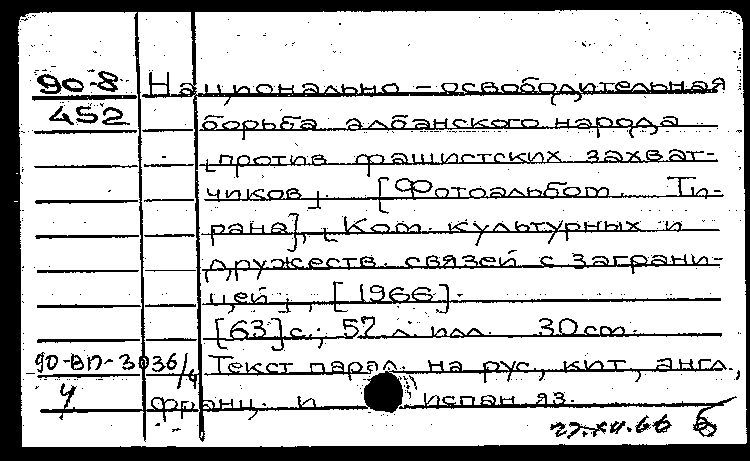 90-8 Национально-освободительная
452 борьба албанского народа
[против фашистских захват-
чиков]. [Фотоальбом. Ти-
рана], [Ком. культурных и
дружеств. связей с заграни-
цей], [1966].
[63] с.; 52 л. илл. 30 cm.
90-ВП-3036/4 Текст парал. на рус., кит., англ.,
франц. и испан яз.
27.XII.66